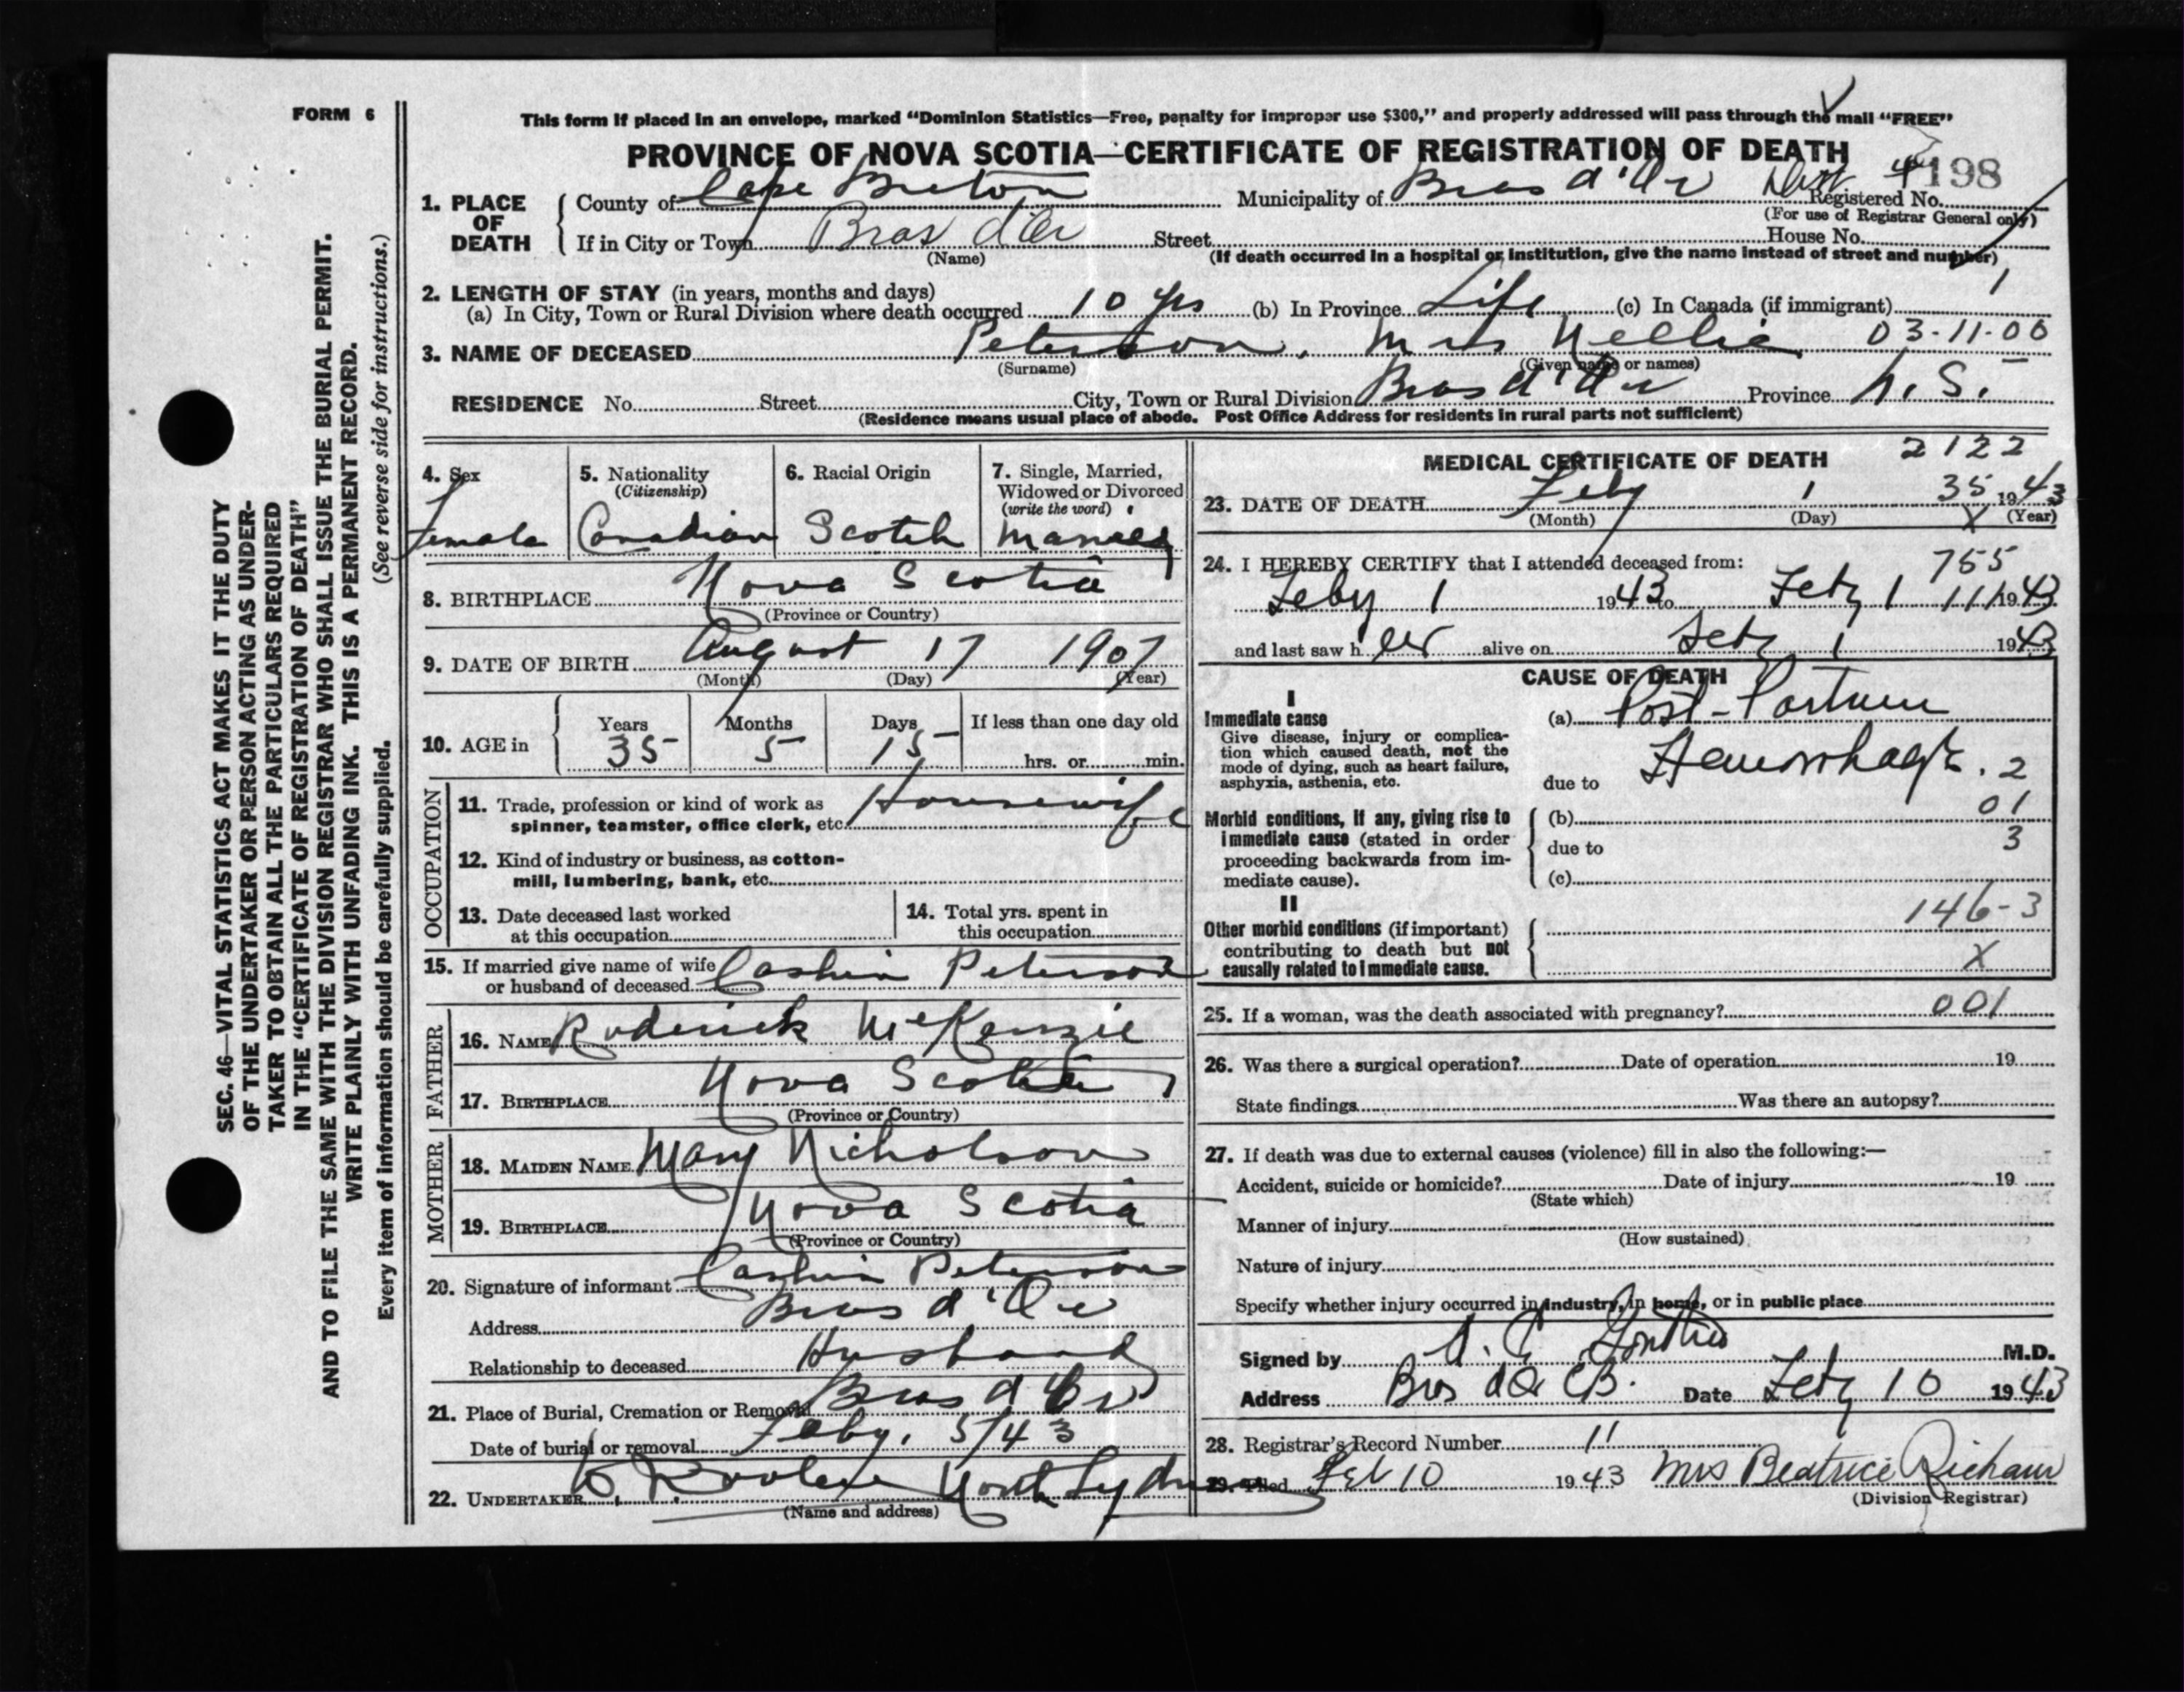 FORM 6
This form if placed in an envelope, marked “Dominion Statistics—Free, penalty for improper use $300,” and properly addressed will pass through the mail “FREE”
PROVINCE OF NOVA SCOTIA—CERTIFICATE OF REGISTRATION OF DEATH
198
1. PLACE OF DEATH
County of Cape Breton Municipality of Bras d'Or Registered No.
(For use of Registrar General only)
If in City or Town Bras d'Or Street House No.
(Name) (If death occurred in a hospital or institution, give the name instead of street and number)
2. LENGTH OF STAY (in years, months and days)
(a) In City, Town or Rural Division where death occurred 10 yrs (b) In Province Life (c) In Canada (if immigrant) 1
3. NAME OF DECEASED Peterson, Mrs Nellie 03-11-00
(Surname) (Given name or names)
RESIDENCE No. Street City, Town or Rural Division Bras d'Or Province N.S.
(Residence means usual place of abode. Post Office Address for residents in rural parts not sufficient)
4. Sex 5. Nationality (Citizenship) 6. Racial Origin 7. Single, Married, Widowed or Divorced (write the word)
Female Canadian Scotch Married
8. BIRTHPLACE Nova Scotia
(Province or Country)
9. DATE OF BIRTH August 17 1907
(Month) (Day) (Year)
10. AGE in Years 35 Months 5 Days 15 If less than one day old hrs. or min.
OCCUPATION
11. Trade, profession or kind of work as spinner, teamster, office clerk, etc. Housewife
12. Kind of industry or business, as cotton-
mill, lumbering, bank, etc.
13. Date deceased last worked at this occupation
14. Total yrs. spent in this occupation
15. If married give name of wife or husband of deceased Peterson
FATHER
16. NAME Roderick McKenzie
17. BIRTHPLACE Nova Scotia
(Province or Country)
MOTHER
18. MAIDEN NAME Mary Nicholson
19. BIRTHPLACE Nova Scotia
(Province or Country)
20. Signature of informant Peterson
Address Bras d'Or
Relationship to deceased Husband
21. Place of Burial, Cremation or Removal Bras d'Or
Date of burial or removal Feby. 5/43
22. UNDERTAKER North Sydney
(Name and address)
MEDICAL CERTIFICATE OF DEATH 2122
23. DATE OF DEATH Feby 1 35 1943
(Month) (Day) X (Year)
24. I HEREBY CERTIFY that I attended deceased from: 755
Feby 1 1943 to Feby 1 111 1943
and last saw her alive on Feby 1 1943
CAUSE OF DEATH
I
Immediate cause
Give disease, injury or complica-
tion which caused death, not the
mode of dying, such as heart failure,
asphyxia, asthenia, etc.
(a) Post-Partum
due to Hemorrhage. 2
Morbid conditions, if any, giving rise to
immediate cause (stated in order
proceeding backwards from im-
mediate cause).
(b) 01
due to 3
(c)
II
Other morbid conditions (if important)
contributing to death but not
causally related to immediate cause.
146-3
X
25. If a woman, was the death associated with pregnancy? 001
26. Was there a surgical operation? Date of operation 19
State findings Was there an autopsy?
27. If death was due to external causes (violence) fill in also the following:—
Accident, suicide or homicide? Date of injury 19
(State which)
Manner of injury
(How sustained)
Nature of injury
Specify whether injury occurred in industry, in home, or in public place
Signed by M.D.
Address Bras d'Or CB. Date Feby 10 1943
28. Registrar's Record Number 11
29. Filed Feb 10 1943 Mrs Beatrice
(Division Registrar)
SEC. 46—VITAL STATISTICS ACT MAKES IT THE DUTY
OF THE UNDERTAKER OR PERSON ACTING AS UNDER-
TAKER TO OBTAIN ALL THE PARTICULARS REQUIRED
IN THE “CERTIFICATE OF REGISTRATION OF DEATH”
AND TO FILE THE SAME WITH THE DIVISION REGISTRAR WHO SHALL ISSUE THE BURIAL PERMIT.
WRITE PLAINLY WITH UNFADING INK. THIS IS A PERMANENT RECORD.
Every item of information should be carefully supplied. (See reverse side for instructions.)